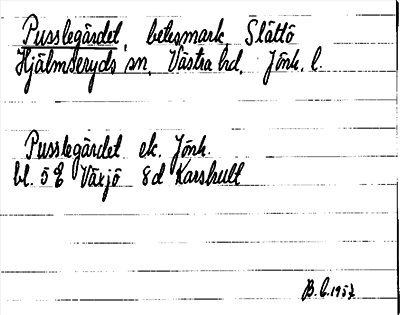 Pusslegärdet, betesmark, Slättö
Hjälmseryds sn, Västra hd, Jönk. l.
Pusslegärdet ek. Jönk.
bl. 5 E Växjö 8d Karshult
B. C. 195